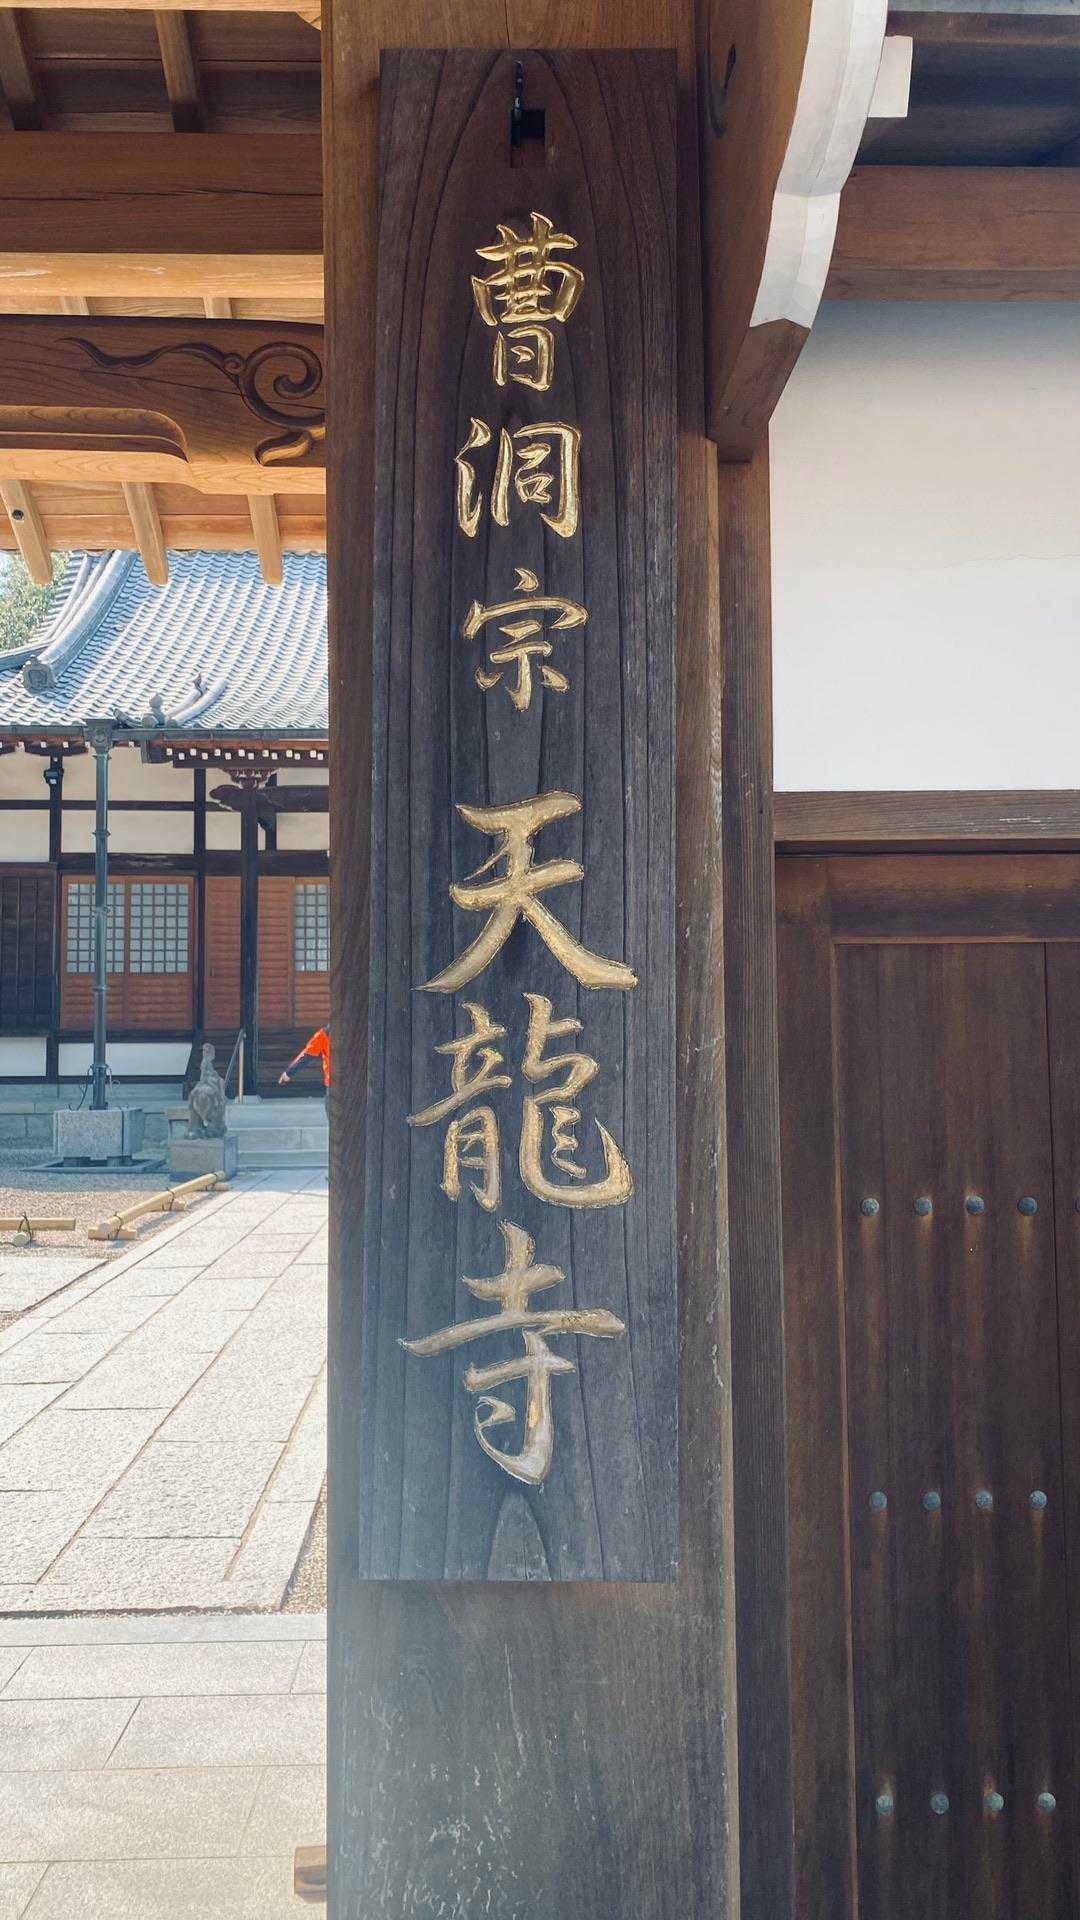 曹洞宗天龍寺